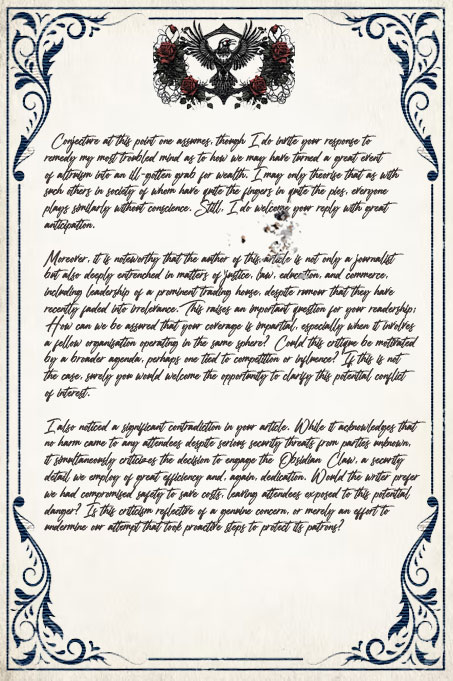 Conjecture at this point one assumes, though I do invite your response to
remedy my most troubled mind as to how we may have turned a great event
of altruism into an ill-gotten grab for wealth. I may only theorise that as with
such others in society of whom have quite the fingers in quite the pies, everyone
plays similarly without conscience. Still, I do welcome your reply with great
anticipation.
Moreover, it is noteworthy that the author of this article is not only a journalist
but also deeply entrenched in matters of justice, law, education, and commerce,
including leadership of a prominent trading house, despite rumour that they have
recently faded into irrelevance. This raises an important question for your readership:
How can we be assured that your coverage is impartial, especially when it involves
a fellow organisation operating in the same sphere? Could this critique be motivated
by a broader agenda, perhaps one tied to competition or influence? If this is not
the case, surely you would welcome the opportunity to clarify this potential conflict
of interest.
I also noticed a significant contradiction in your article. While it acknowledges that
no harm came to any attendees despite serious security threats from parties unknown,
it simultaneously criticizes the decision to engage the Obsidian Claw, a security
detail we employ of great efficiency and, again, dedication. Would the writer prefer
we had compromised safety to save costs, leaving attendees exposed to this potential
danger? Is this criticism reflective of a genuine concern, or merely an effort to
undermine our attempt that took proactive steps to protect its patrons?